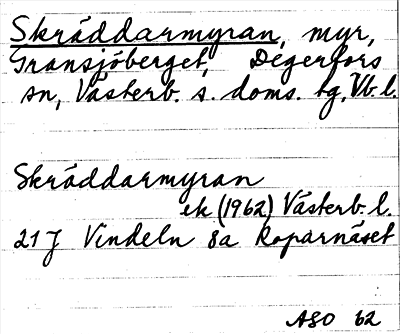 Skräddarmyran, myr,
Gransjöberget, Degerfors
sn, Västerb. s. doms. tg, Vb. l.
Skräddarmyran
ek (1962) Västerb. l.
21 J Vindeln 8a Roparnäset
ASO 62